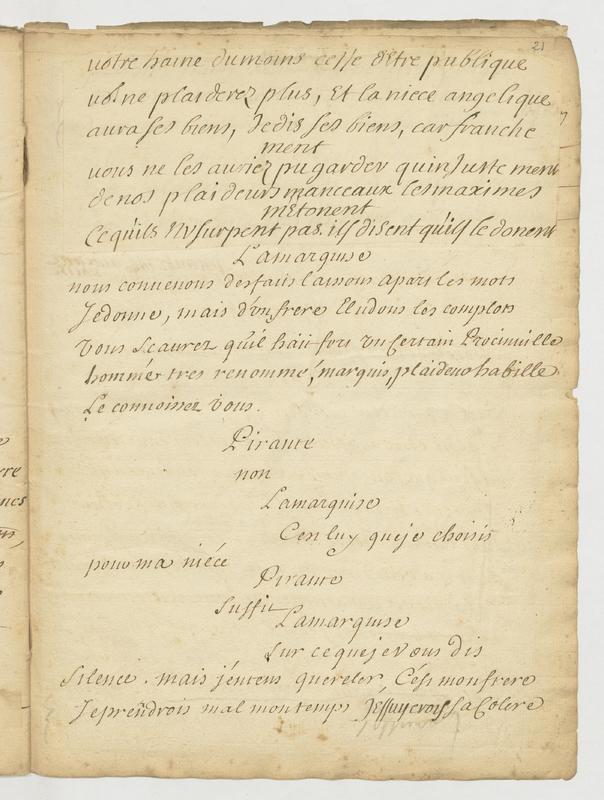 21
votre haine dumoins cesse d'Etre publique
vous ne plaiderez plus, Et la niece angelique
aura ses biens, Je dis ses biens, car franche
ment
vous ne les auriez pu garder qu'injuste ment
de nos plaideurs manceaux les maximes
m'Etonent
Ce qu'ils N'usurpent pas ils disent qu'ils le donent
Lamarquise
nous convenons des faits laissons apart les mots
Je donne, mais d'un frere Eludons les complots
Vous Scaurez qu'il hait fort un Certain Procinville
homme tres renommé, marquis, plaideur habille
Le connoissez vous.
Pirante
non
Lamarquise
C'est luy que je choisis
pour ma niéce
Pirante
Suffit
Lamarquise
Sur ce que je vous dis
Silence. mais j'entens quereler, C'est mon frere
Je prendrois mal mon temps J'Essuyerois Sa Colere